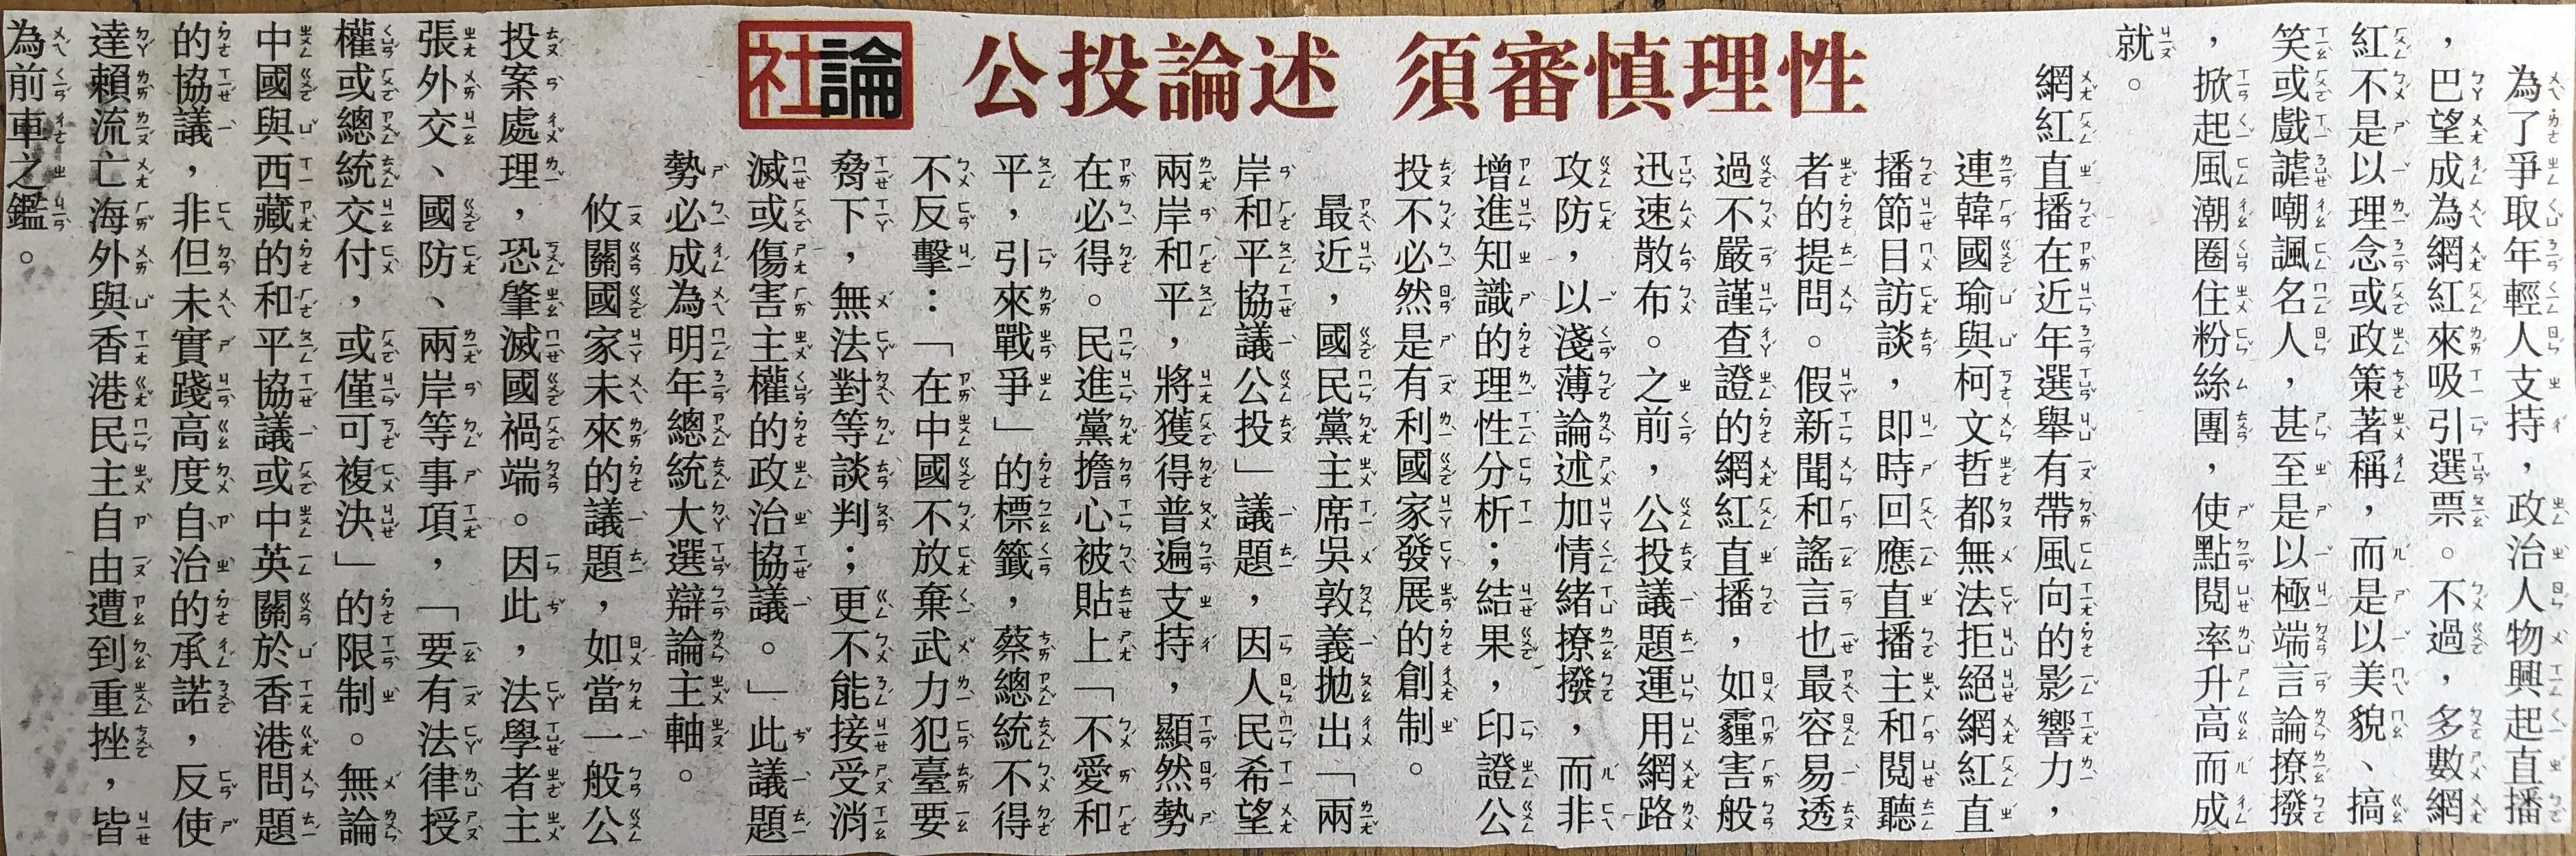 社論
公投論述 須審慎理性
為了爭取年輕人支持，政治人物興起直播
，巴望成為網紅來吸引選票。不過，多數網
紅不是以理念或政策著稱，而是以美貌、搞
笑或戲謔嘲諷名人，甚至是以極端言論撩撥
，掀起風潮圈住粉絲團，使點閱率升高而成
就。
網紅直播在近年選舉有帶風向的影響力，
連韓國瑜與柯文哲都無法拒絕網紅直
播節目訪談，即時回應直播主和閱聽
者的提問。假新聞和謠言也最容易透
過不嚴謹查證的網紅直播，如霾害般
迅速散布。之前，公投議題運用網路
攻防，以淺薄論述加情緒撩撥，而非
增進知識的理性分析；結果，印證公
投不必然是有利國家發展的創制。
最近，國民黨主席吳敦義拋出「兩
岸和平協議公投」議題，因人民希望
兩岸和平，將獲得普遍支持，顯然勢
在必得。民進黨擔心被貼上「不愛和
平，引來戰爭」的標籤，蔡總統不得
不反擊：「在中國不放棄武力犯臺要
脅下，無法對等談判；更不能接受消
滅或傷害主權的政治協議。」此議題
勢必成為明年總統大選辯論主軸。
攸關國家未來的議題，如當一般公
投案處理，恐肇滅國禍端。因此，法學者主
張外交、國防、兩岸等事項，「要有法律授
權或總統交付，或僅可複決」的限制。無論
中國與西藏的和平協議或中英關於香港問題
的協議，非但未實踐高度自治的承諾，反使
達賴流亡海外與香港民主自由遭到重挫，皆
為前車之鑑。